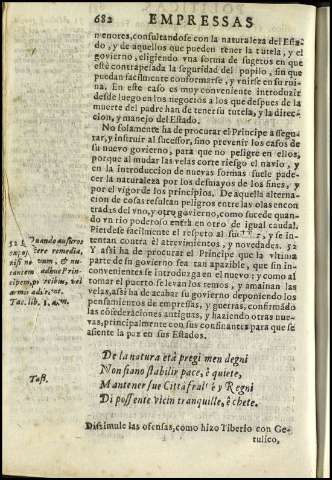 682 EMPRESSAS
menores, consultandose con la naturaleza del Esta-
do, y de aquellos que pueden tener la tutela, y el
govierno, eligiendo vna forma de sugetos en que
esté contrapesada la seguridad del pupilo, sin que
puedan facilmente conformarse, y vnirse en su rui-
na. En este caso es muy conveniente introduzir
desde luego en los negocios a los que despues de la
muerte del padre han de tener su tutela, y la direc-
cion, y manejo del Estado.
No solamente ha de procurar el Principe assegu-
rar, y instruir al sucessor, sino prevenir los casos de
su nuevo govierno, para que no peligre en ellos,
porque al mudar las velas corre riesgo el navio, y
en la introduccion de nuevas formas suele pade-
cer la naturaleza por los desmayos de los fines, y
por el vigor de los principios. De aquella alterna-
cion de cosas resultan peligros entre las olas encon
tradas del vno, y otro govierno, como sucede quan-
do vn rio poderoso entra en otro de igual caudal.
Pierdese facilmente el respeto al y in-
tentan contra él atrevimientos, y novedades. 52
Y assi ha de procurar el Principe que la vltima
parte de su govierno sea tan apazible, que sin in-
convenientes se introduzga en el nuevo; y como al
tomar el puerto se levan los remos, y amainan las
velas, assi ha de acabar su govierno deponiendo los
pensamientos de empresas, y guerras, confirmādo
las cōfederaciones antiguas, y haziendo otras nue-
vas, principalmente con sus confinantes para que se
assiente la paz en sus Estados.
52 Quando ausuros
remedia,
nisi novum, & nu-
tantem adhuc Prin-
cipem, precibus, vel
armis adirent.
Tac. lib. 1. ann.
Tass.
De la natura età pregi men degni
Non fiano stabilir pace, è quiete,
Mantener sue Città fra l'è y Regni
Di possente vicin tranquille, è chete.
Dissimule las ofensas, como hizo Tiberio con Ge-
tulico,